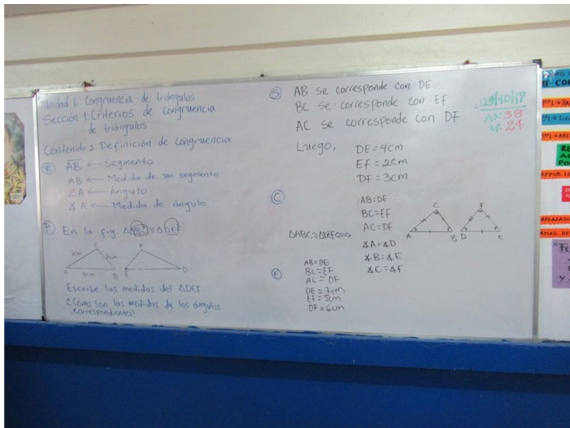 Unidad 6: Congruencia de triángulos
Sección 1: Criterios de congruencia
de triángulos
Contenido 2: Definición de congruencia
R AB ← Segmento
AB ← Medida de un segmento
∠A ← Ángulo
∡A ← Medida de ángulo
P En la fig △ABC≅△DEF
Escribe las medidas del △DEF
¿Cómo son las medidas de los ángulos
correspondientes?
S AB se corresponde con DE
BC se corresponde con EF
AC se corresponde con DF
Luego, DE=4cm
EF=2cm
DF=3cm
29/10/18
AS: 38
24
C AB=DF
BC=EF
AC=DF
△ABC≅△DEF⟺
∡A=∡D
∡B=∡E
∡C=∡F
C F
A B D E
E AB=DE
BC=EF
AC=DF
DE=7cm
EF=5cm
DF=6cm